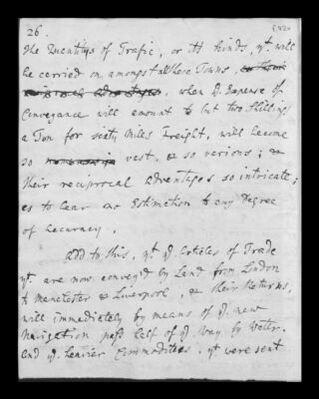 26.
The Quantitys of Trafic, or its kinds, yt. will
be carried on amongst all these Towns,
when ye. Expense of
Conveyance will amount to but two Shillings
a Ton for sixty Miles Freight, will become
so vast, & so various; &
their reciprocal Advantages so intricate;
as to bear no Estimation to any Degree
of Accuracy.
Add to this, yt. ye. Articles of Trade
yt. are now convey'd by Land from London
to Manchester & Liverpool, & their Returns,
will immediately by means of ye. new
Navigation pass half of ye. Way by Water.
And ye. heavier Commodities, yt. were sent